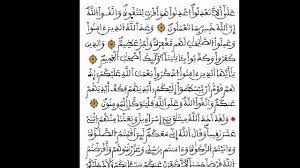 عَلَىٰٓ أَلَّا تَعْدِلُوا۟ ٱعْدِلُوا۟ هُوَ أَقْرَبُ لِلتَّقْوَىٰ وَٱتَّقُوا۟ ٱللَّهَ
إِنَّ ٱللَّهَ خَبِيرٌۢ بِمَا تَعْمَلُونَ وَعَدَ ٱللَّهُ ٱلَّذِينَ ءَامَنُوا۟
وَعَمِلُوا۟ ٱلصَّـٰلِحَـٰتِ لَهُم مَّغْفِرَةٌ وَأَجْرٌ عَظِيمٌ وَٱلَّذِينَ
كَفَرُوا۟ وَكَذَّبُوا۟ بِـَٔايَـٰتِنَآ أُو۟لَـٰٓئِكَ أَصْحَـٰبُ ٱلْجَحِيمِ
يَـٰٓأَيُّهَا ٱلَّذِينَ ءَامَنُوا۟ ٱذْكُرُوا۟ نِعْمَتَ ٱللَّهِ عَلَيْكُمْ إِذْ هَمَّ
قَوْمٌ أَن يَبْسُطُوٓا۟ إِلَيْكُمْ أَيْدِيَهُمْ فَكَفَّ أَيْدِيَهُمْ
عَنكُمْ وَٱتَّقُوا۟ ٱللَّهَ وَعَلَى ٱللَّهِ فَلْيَتَوَكَّلِ ٱلْمُؤْمِنُونَ
وَلَقَدْ أَخَذَ ٱللَّهُ مِيثَـٰقَ بَنِىٓ إِسْرَٰٓءِيلَ وَبَعَثْنَا مِنْهُمُ
ٱثْنَىْ عَشَرَ نَقِيبًا وَقَالَ ٱللَّهُ إِنِّى مَعَكُمْ لَئِنْ أَقَمْتُمُ ٱلصَّلَوٰةَ
وَءَاتَيْتُمُ ٱلزَّكَوٰةَ وَءَامَنتُم بِرُسُلِى وَعَزَّرْتُمُوهُمْ وَأَقْرَضْتُمُ